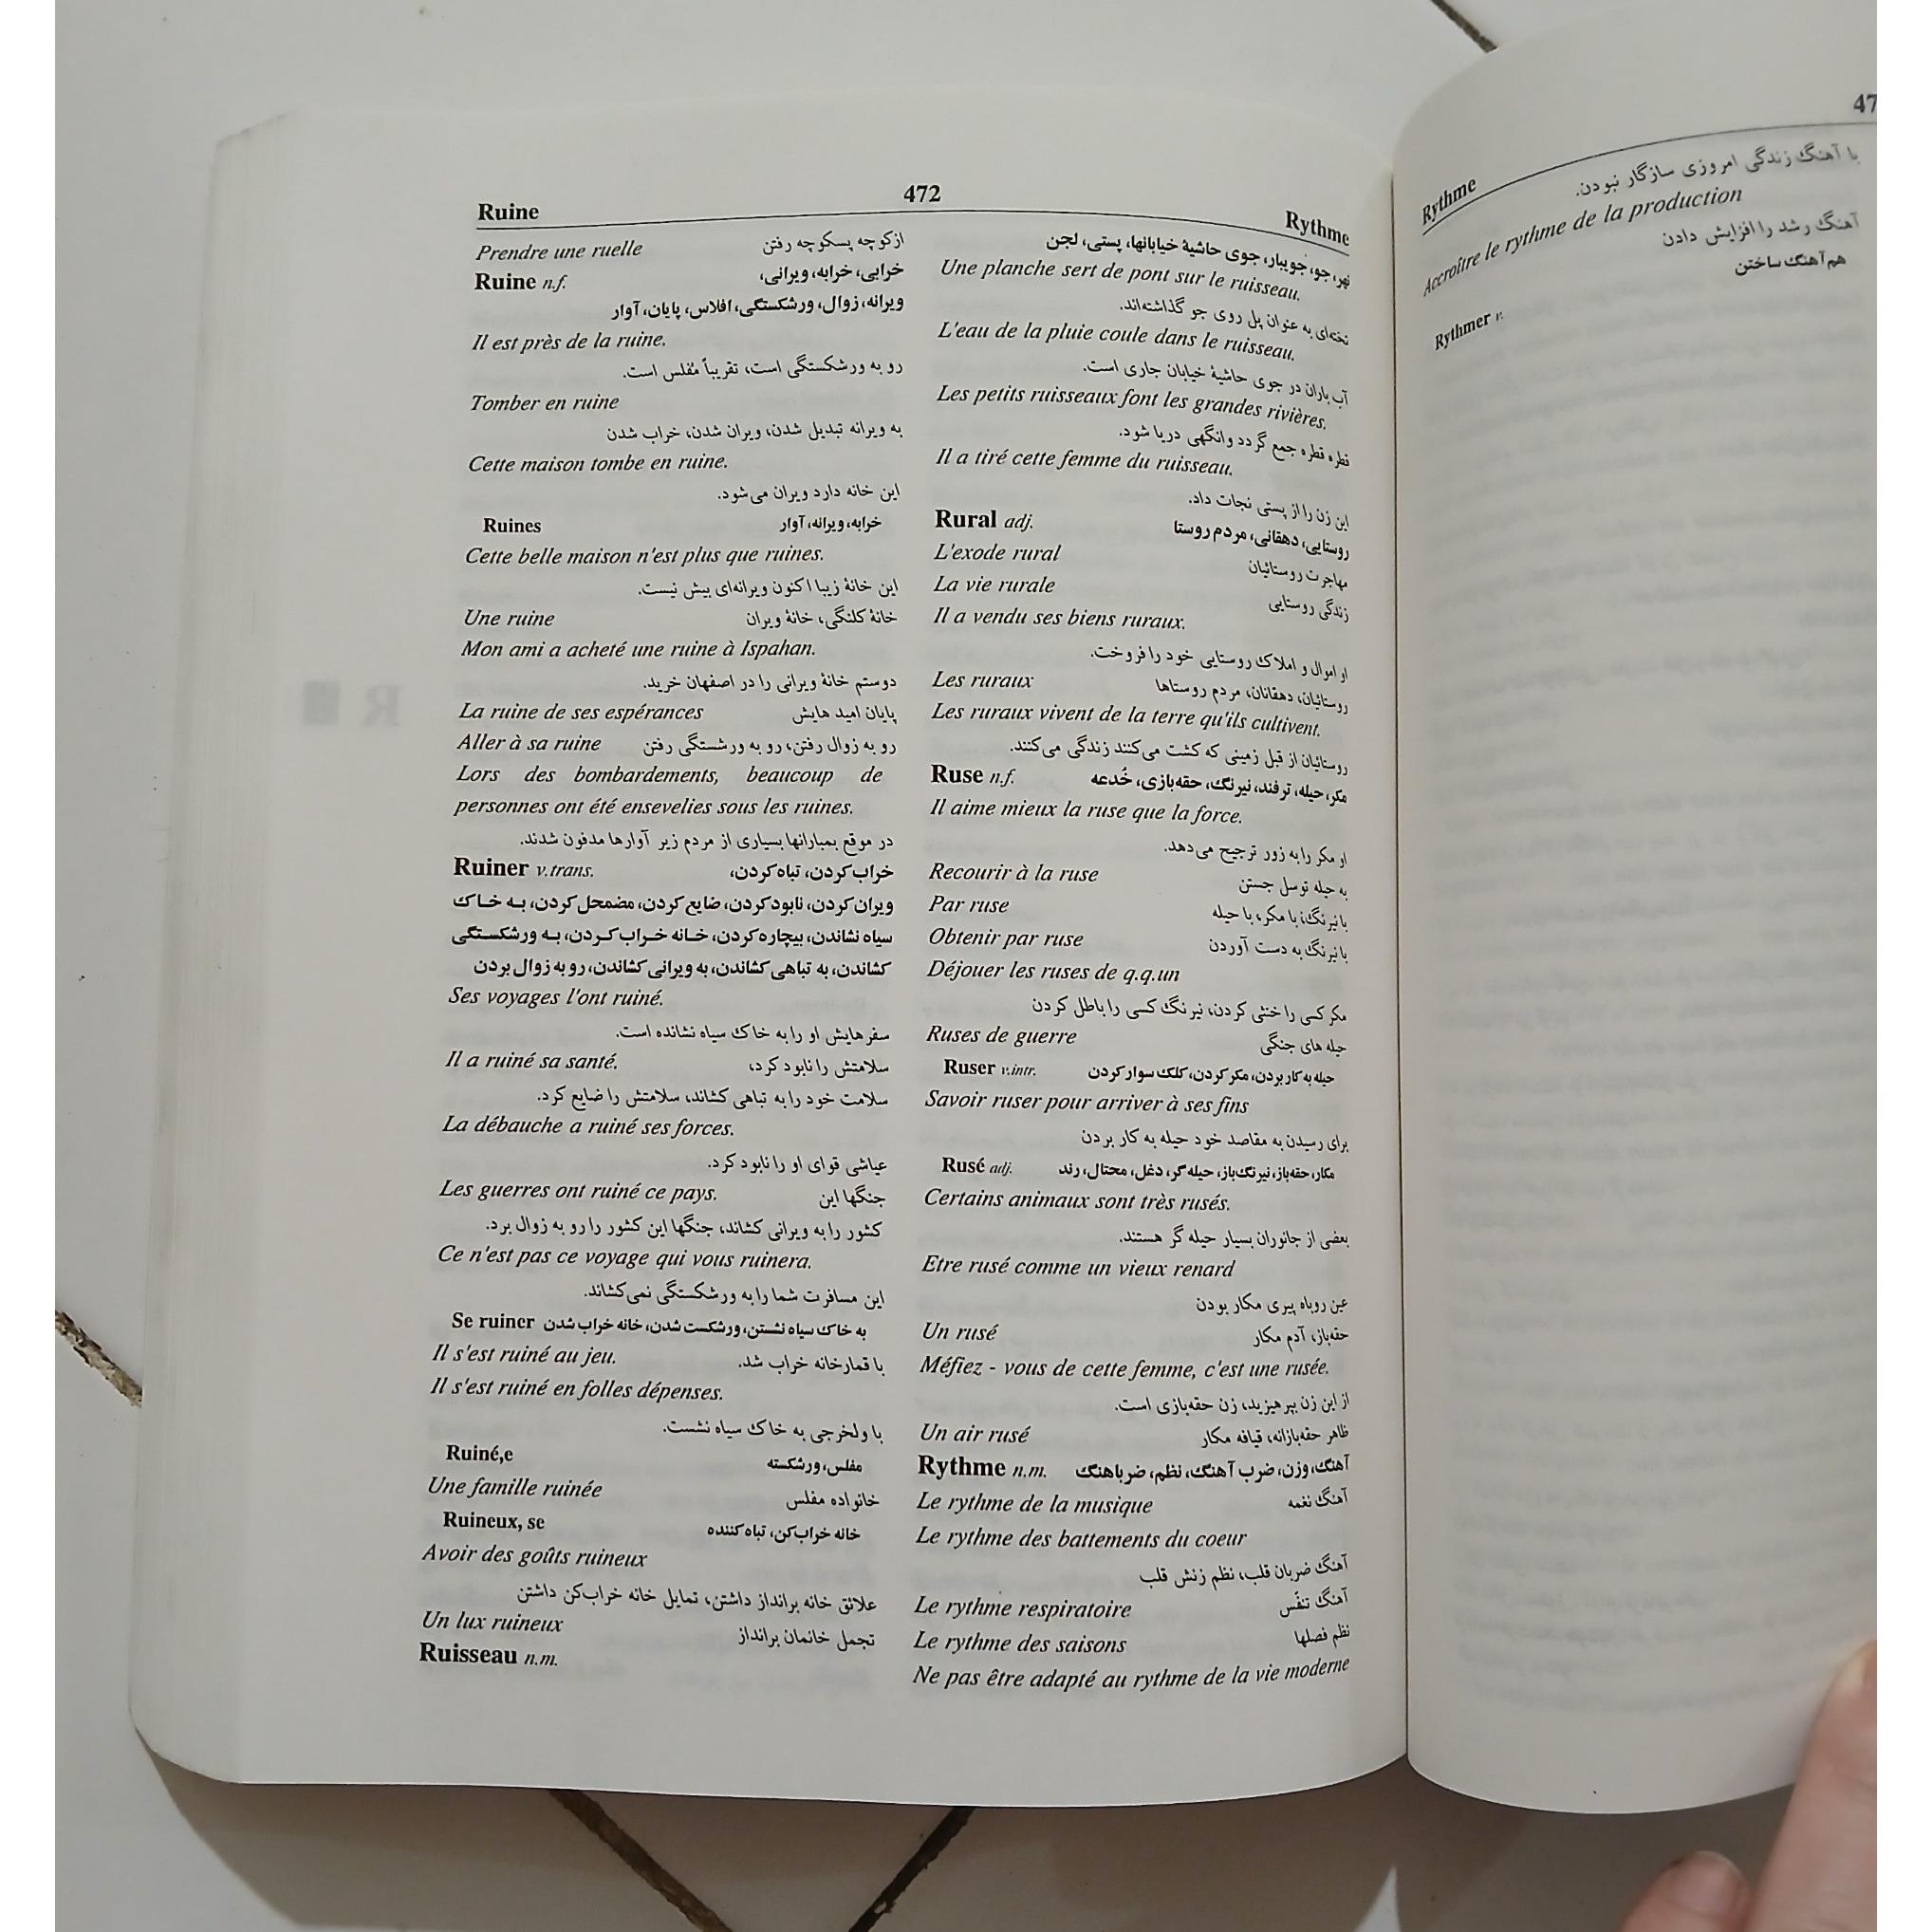 Ruine 472 Rythme
Prendre une ruelle ازکوچه پسکوچه رفتن
Ruine n.f. خرابی، خرابه، ویرانی،
ویرانه، زوال، ورشکستگی، افلاس، پایان، آوار
Il est près de la ruine.
رو به ورشکستگی است، تقریباً مُفلس است.
Tomber en ruine
به ویرانه تبدیل شدن، ویران شدن، خراب شدن
Cette maison tombe en ruine.
این خانه دارد ویران می‌شود.
Ruines خرابه، ویرانه، آوار
Cette belle maison n'est plus que ruines.
این خانهٔ زیبا اکنون ویرانه‌ای بیش نیست.
Une ruine خانهٔ کلنگی، خانهٔ ویران
Mon ami a acheté une ruine à Ispahan.
دوستم خانهٔ ویرانی را در اصفهان خرید.
La ruine de ses espérances پایان امید هایش
Aller à sa ruine رو به زوال رفتن، رو به ورشستگی رفتن
Lors des bombardements, beaucoup de
personnes ont été ensevelies sous les ruines.
در موقع بمبارانها بسیاری از مردم زیر آوارها مدفون شدند.
Ruiner v.trans. خراب‌کردن، تباه‌کردن،
ویران‌کردن، نابودکردن، ضایع‌کردن، مضمحل‌کردن، به خاک
سیاه نشاندن، بیچاره‌کردن، خانه خراب‌کردن، به ورشکستگی
کشاندن، به تباهی کشاندن، به ویرانی کشاندن، رو به زوال بردن
Ses voyages l'ont ruiné.
سفرهایش او را به خاک سیاه نشانده است.
Il a ruiné sa santé. سلامتش را نابود کرد،
سلامت خود را به تباهی کشاند، سلامتش را ضایع کرد.
La débauche a ruiné ses forces.
عیاشی قوای او را نابود کرد.
Les guerres ont ruiné ce pays. جنگها این
کشور را به ویرانی کشاند، جنگها این کشور را رو به زوال برد.
Ce n'est pas ce voyage qui vous ruinera.
این مسافرت شما را به ورشکستگی نمی‌کشاند.
Se ruiner به خاک سیاه نشستن، ورشکست شدن، خانه خراب شدن
Il s'est ruiné au jeu. با قمارخانه خراب شد.
Il s'est ruiné en folles dépenses.
با ولخرجی به خاک سیاه نشست.
Ruiné,e مفلس، ورشکسته
Une famille ruinée خانواده مفلس
Ruineux, se خانه خراب‌کن، تباه‌کننده
Avoir des goûts ruineux
علائق خانه برانداز داشتن، تمایل خانه خراب‌کن داشتن
Un lux ruineux تجمل خانمان برانداز
Ruisseau n.m.
نهر، جو، جویبار، جوی حاشیهٔ خیابانها، پستی، لجن
Une planche sert de pont sur le ruisseau.
تخته‌ای به عنوان پل روی جو گذاشته‌اند.
L'eau de la pluie coule dans le ruisseau.
آب باران در جوی حاشیهٔ خیابان جاری است.
Les petits ruisseaux font les grandes rivières.
قطره قطره جمع گردد وانگهی دریا شود.
Il a tiré cette femme du ruisseau.
این زن را از پستی نجات داد.
Rural adj. روستایی، دهقانی، مردم روستا
L'exode rural مهاجرت روستائیان
La vie rurale زندگی روستایی
Il a vendu ses biens ruraux.
او اموال و املاک روستایی خود را فروخت.
Les ruraux روستائیان، دهقانان، مردم روستاها
Les ruraux vivent de la terre qu'ils cultivent.
روستائیان از قبل زمینی که کشت می‌کنند زندگی می‌کنند.
Ruse n.f. مکر، حیله، ترفند، نیرنگ، حقه‌بازی، خُدعه
Il aime mieux la ruse que la force.
او مکر را به زور ترجیح می‌دهد.
Recourir à la ruse به حیله توسل جستن
Par ruse با نیرنگ، با مکر، با حیله
Obtenir par ruse با نیرنگ به دست آوردن
Déjouer les ruses de q.q.un
مکر کسی را خنثی کردن، نیرنگ کسی را باطل کردن
Ruses de guerre حیله های جنگی
Ruser v.intr. حیله به‌کار بردن، مکرکردن، کلک سوارکردن
Savoir ruser pour arriver à ses fins
برای رسیدن به مقاصد خود حیله به کار بردن
Rusé adj. مکار، حقه‌باز، نیرنگ‌باز، حیله‌گر، دغل، محتال، رند
Certains animaux sont très rusés.
بعضی از جانوران بسیار حیله گر هستند.
Etre rusé comme un vieux renard
عین روباه پیری مکار بودن
Un rusé حقه‌باز، آدم مکار
Méfiez - vous de cette femme, c'est une rusée.
از این زن بپرهیزید، زن حقه‌بازی است.
Un air rusé ظاهر حقه‌بازانه، قیافه مکار
Rythme n.m. آهنگ، وزن، ضرب آهنگ، نظم، ضرباهنگ
Le rythme de la musique آهنگ نغمه
Le rythme des battements du coeur
آهنگ ضربان قلب، نظم زنش قلب
Le rythme respiratoire آهنگ تنفّس
Le rythme des saisons نظم فصلها
Ne pas être adapté au rythme de la vie moderne
Rythme 47
با آهنگ زندگی امروزی سازگار نبودن.
Accroître le rythme de la production
آهنگ رشد را افزایش دادن
Rythmer v. هم‌آهنگ ساختن
R